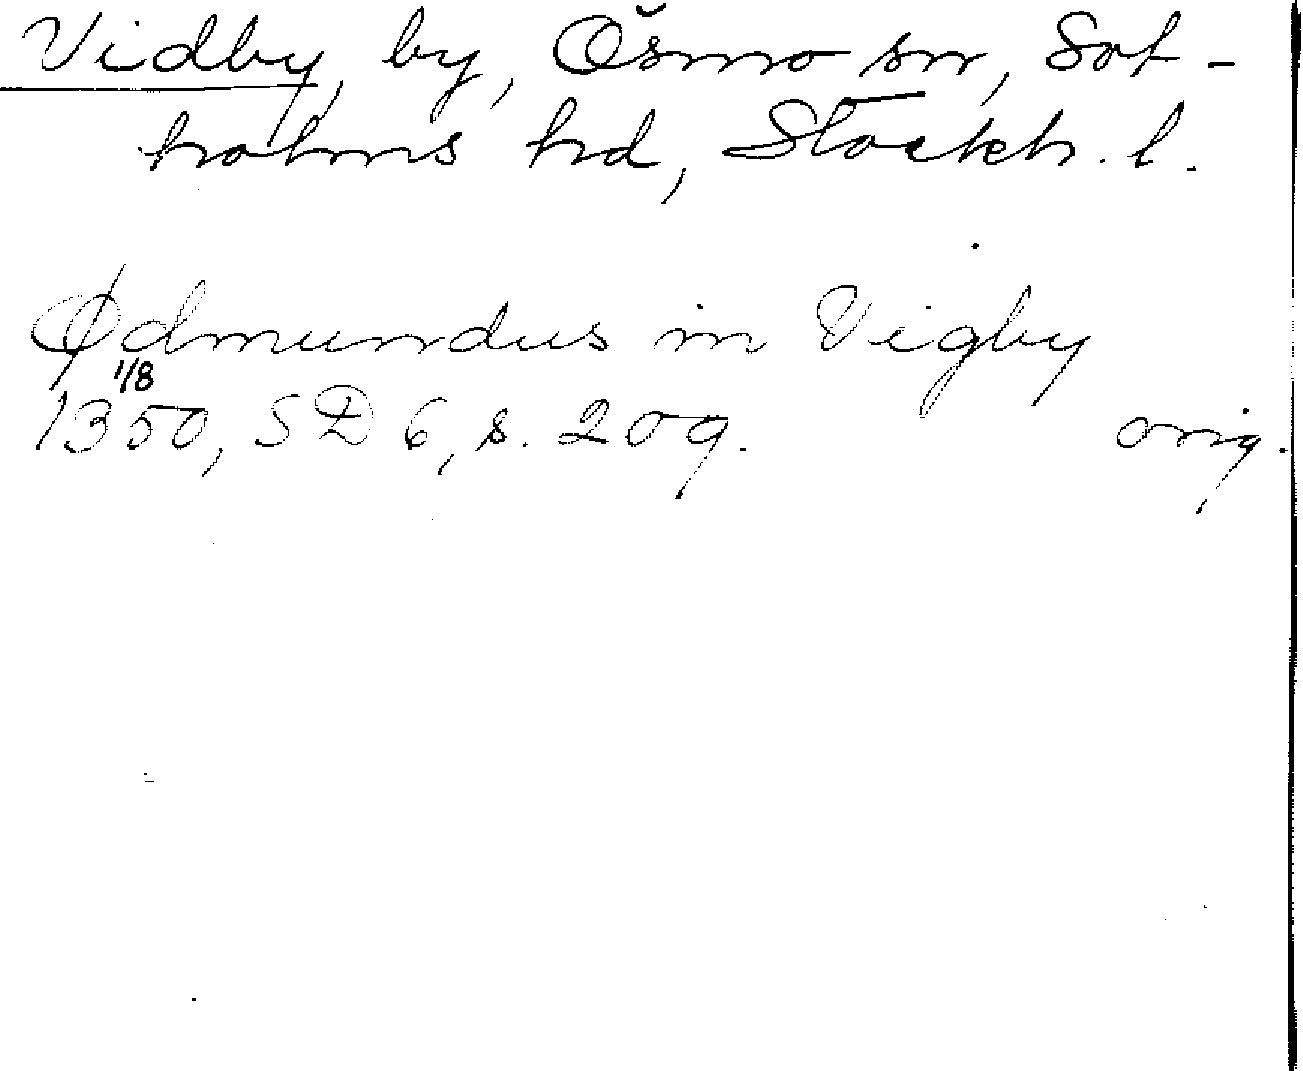 Vidby, by, Ösmo sn, Sot-
holms hd, Stockh. l.
Ødmundus in Vigby
1/8
1350, SD 6, s. 209. orig.